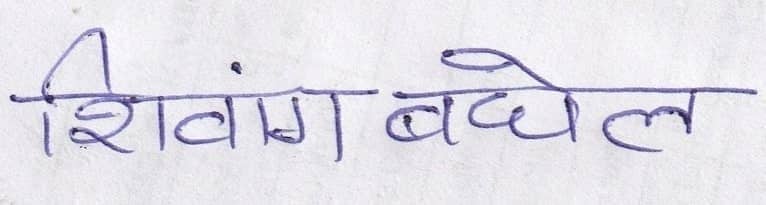 शिवांग बघेल